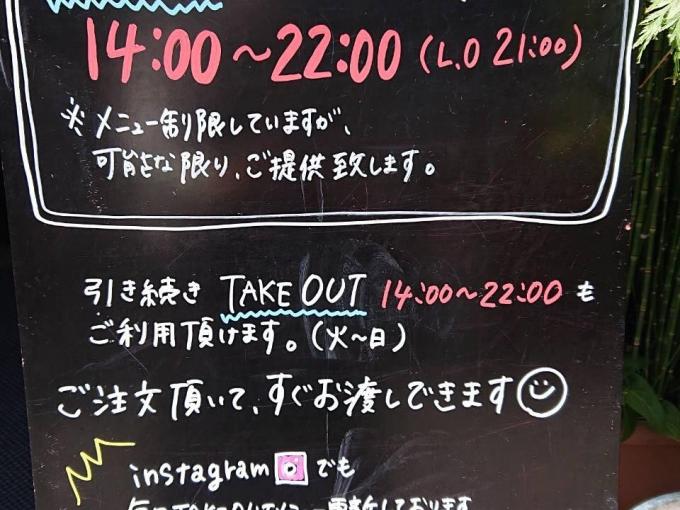 14:00～22:00 (L.O 21:00)
※メニュー制限していますが、
可能な限り、ご提供致します。
引き続き TAKE OUT 14:00～22:00 も
ご利用頂けます。(火～日)
ご注文頂いて、すぐお渡しできます
instagram でも
更新しております